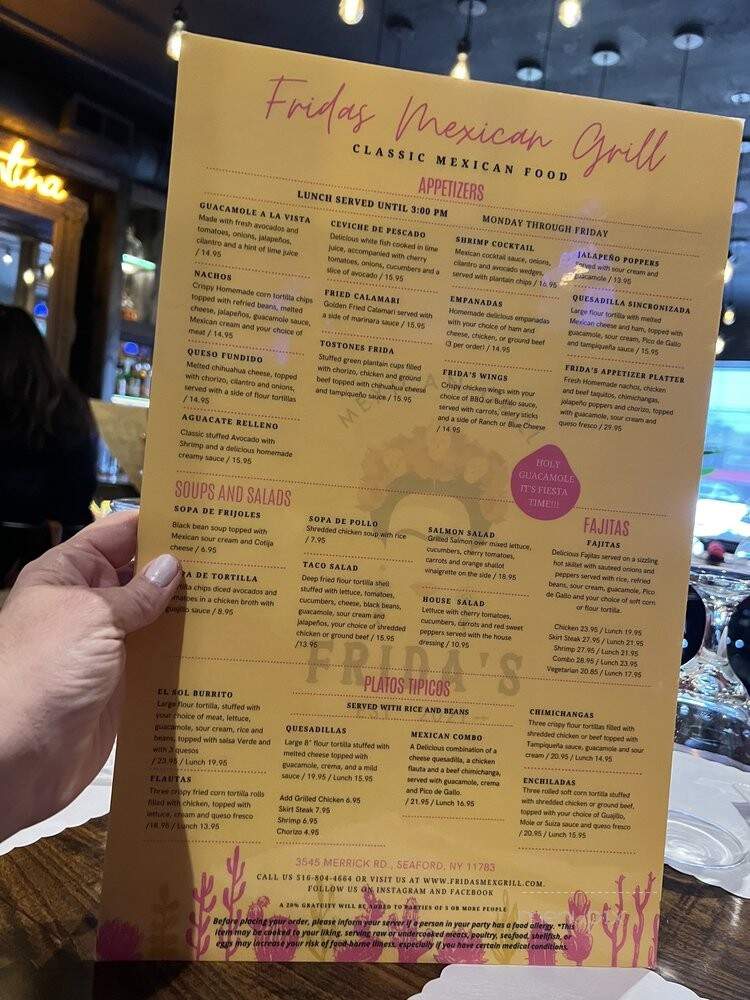 Fridas Mexican Grill
CLASSIC MEXICAN FOOD
APPETIZERS
LUNCH SERVED UNTIL 3:00 PM MONDAY THROUGH FRIDAY
GUACAMOLE A LA VISTA
Made with fresh avocados and
tomatoes, onions, jalapeños,
cilantro and a hint of lime juice
/ 14.95
NACHOS
Crispy Homemade corn tortilla chips
topped with refried beans, melted
cheese, jalapeños, guacamole sauce,
Mexican cream and your choice of
meat / 14.95
QUESO FUNDIDO
Melted chihuahua cheese, topped
with chorizo, cilantro and onions,
served with a side of flour tortillas
/ 14.95
AGUACATE RELLENO
Classic stuffed Avocado with
Shrimp and a delicious homemade
creamy sauce / 15.95
CEVICHE DE PESCADO
Delicious white fish cooked in lime
juice, accompanied with cherry
tomatoes, onions, cucumbers and a
slice of avocado / 15.95
FRIED CALAMARI
Golden Fried Calamari served with
a side of marinara sauce / 15.95
TOSTONES FRIDA
Stuffed green plantain cups filled
with chorizo, chicken and ground
beef topped with chihuahua cheese
and tampiqueña sauce / 15.95
SHRIMP COCKTAIL
Mexican cocktail sauce, onions,
cilantro and avocado wedges,
served with plantain chips / 16.95
EMPANADAS
Homemade delicious empanadas
with your choice of ham and
cheese, chicken, or ground beef
(3 per order) / 14.95
FRIDA'S WINGS
Crispy chicken wings with your
choice of BBQ or Buffalo sauce,
served with carrots, celery sticks
and a side of Ranch or Blue Cheese
/ 14.95
JALAPEÑO POPPERS
Served with sour cream and
guacamole / 13.95
QUESADILLA SINCRONIZADA
Large flour tortilla with melted
Mexican cheese and ham, topped with
guacamole, sour cream, Pico de Gallo
and tampiqueña sauce / 15.95
FRIDA'S APPETIZER PLATTER
Fresh Homemade nachos, chicken
and beef taquitos, chimichangas,
jalapeño poppers and chorizo, topped
with guacamole, sour cream and
queso fresco / 29.95
HOLY
GUACAMOLE
IT'S FIESTA
TIME!!!
SOUPS AND SALADS
SOPA DE FRIJOLES
Black bean soup topped with
Mexican sour cream and Cotija
cheese / 6.95
PA DE TORTILLA
chips diced avocados and
tomatoes in a chicken broth with
guajillo sauce / 8.95
SOPA DE POLLO
Shredded chicken soup with rice
/ 7.95
TACO SALAD
Deep fried flour tortilla shell
stuffed with lettuce, tomatoes,
cucumbers, cheese, black beans,
guacamole, sour cream and
jalapeños, your choice of shredded
chicken or ground beef / 15.95
/13.95
SALMON SALAD
Grilled Salmon over mixed lettuce,
cucumbers, cherry tomatoes,
carrots and orange shallot
vinaigrette on the side / 18.95
HOUSE SALAD
Lettuce with cherry tomatoes,
cucumbers, carrots and red sweet
peppers served with the house
dressing / 10.95
FAJITAS
FAJITAS
Delicious Fajitas served on a sizzling
hot skillet with sauteed onions and
peppers served with rice, refried
beans, sour cream, guacamole, Pico
de Gallo and your choice of soft corn
or flour tortilla.
Chicken 23.95 / Lunch 19.95
Skirt Steak 27.95 / Lunch 21.95
Shrimp 27.95 / Lunch 21.95
Combo 28.95 / Lunch 23.95
Vegetarian 20.85 / Lunch 17.95
FRIDA'S
PLATOS TIPICOS
SERVED WITH RICE AND BEANS
EL SOL BURRITO
Large flour tortilla, stuffed with
your choice of meat, lettuce,
guacamole, sour cream, rice and
beans, topped with salsa Verde and
with 3 quesos
/ 23.95/ Lunch 19.95
FLAUTAS
Three crispy fried corn tortilla rolls
filled with chicken, topped with
lettuce, cream and queso fresco
/18.95 / Lunch 13.95
QUESADILLAS
Large 8" flour tortilla stuffed with
melted cheese topped with
guacamole, crema, and a mild
sauce / 19.95 / Lunch 15.95
Add Grilled Chicken 6.95
Skirt Steak 7.95
Shrimp 6.95
Chorizo 4.95
MEXICAN COMBO
A Delicious combination of a
cheese quesadilla, a chicken
flauta and a beef chimichanga,
served with guacamole, crema
and Pico de Gallo.
/ 21.95 / Lunch 16.95
CHIMICHANGAS
Three crispy flour tortillas filled with
shredded chicken or beef topped with
Tampiqueña sauce, guacamole and sour
cream / 20.95 / Lunch 14.95
ENCHILADAS
Three rolled soft corn tortilla stuffed
with shredded chicken or ground beef,
topped with your choice of Guajillo,
Mole or Suiza sauce and queso fresco
/ 20.95 / Lunch 15.95
3545 MERRICK RD., SEAFORD, NY 11783
CALL US 516-804-4664 OR VISIT US AT WWW.FRIDASMEXGRILL.COM.
FOLLOW US ON INSTAGRAM AND FACEBOOK
A 20% GRATUITY WILL BE ADDED TO PARTIES OF 5 OR MORE PEOPLE
Before placing your order, please inform your server if a person in your party has a food allergy. *This
item may be cooked to your liking, serving raw or undercooked meats, poultry, seafood, shellfish, or
eggs may increase your risk of food-borne illness, especially if you have certain medical conditions.